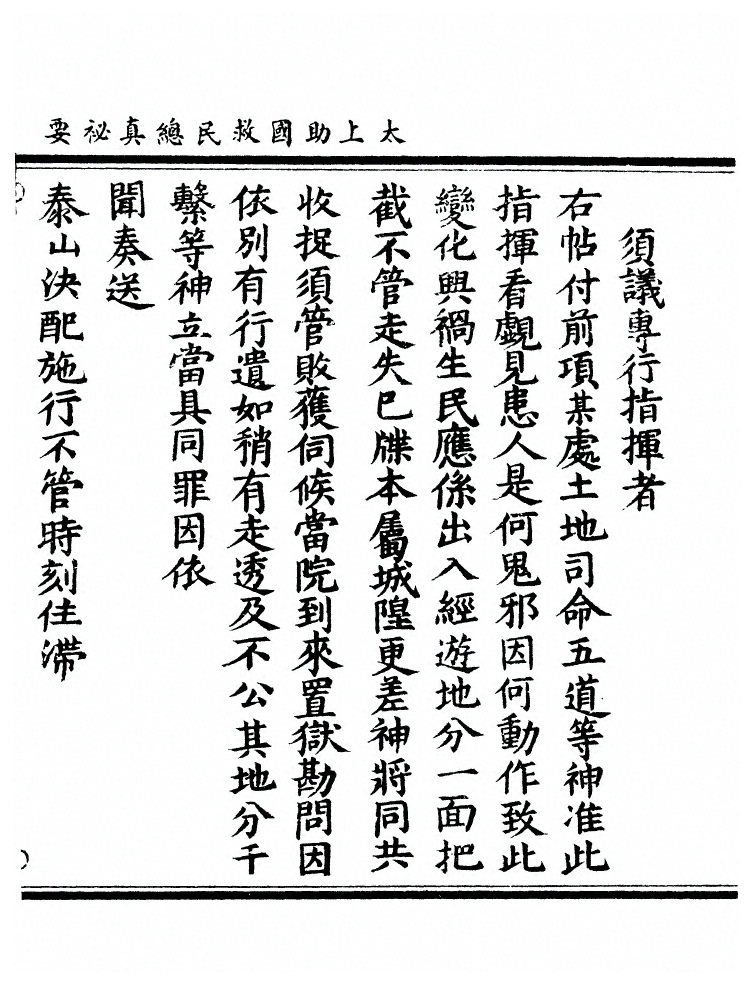 太上助國救民總真祕要
須議專行指揮者
右帖付前項某處土地司命五道等神准此
指揮看覷見患人是何鬼邪因何動作致此
變化興禍生民應係出入經遊地分一面把
截不管走失已牒本屬城隍更差神將同共
收捉須管敗獲伺候當院到來置獄勘問因
依別有行遣如稍有走透及不公其地分千
繫等神立當具同罪因依
聞奏送
泰山決配施行不管時刻住滯